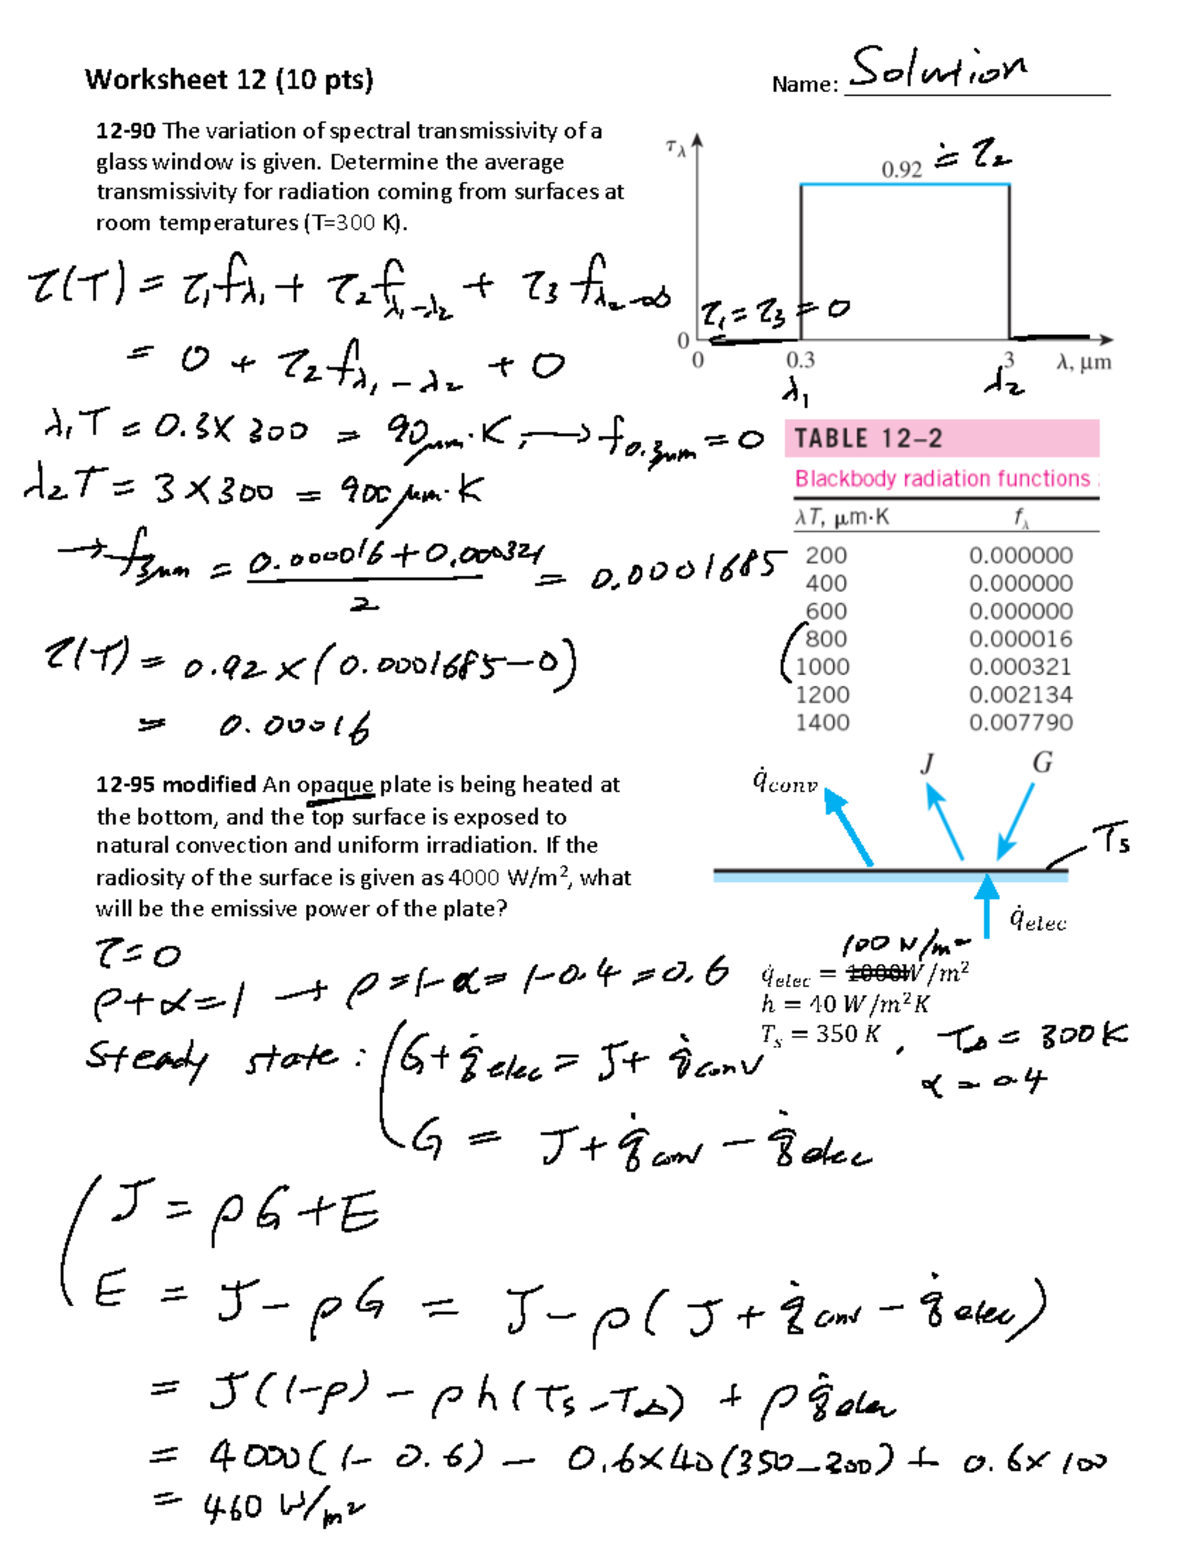 Worksheet 12 (10 pts)
Name: Solution
12-90 The variation of spectral transmissivity of a
glass window is given. Determine the average
transmissivity for radiation coming from surfaces at
room temperatures (T=300 K).
τλ
0.92 ≐ τ₂
τ₁ = τ₃ = 0
0
0 0.3 3 λ, μm
λ₁ λ₂
τ(T) = τ₁fλ₁ + τ₂fλ₁-λ₂ + τ₃fλ₂-∞
= 0 + τ₂fλ₁-λ₂ + 0
λ₁T = 0.3 × 300 = 90 μm·K, → f0.3μm = 0
λ₂T = 3 × 300 = 900 μm·K
→ f3μm = (0.000016 + 0.000321)/2 = 0.0001685
τ(T) = 0.92 × (0.0001685 - 0)
= 0.00016
TABLE 12–2
Blackbody radiation functions
λT, μm·K fλ
200 0.000000
400 0.000000
600 0.000000
800 0.000016
1000 0.000321
1200 0.002134
1400 0.007790
12-95 modified An opaque plate is being heated at
the bottom, and the top surface is exposed to
natural convection and uniform irradiation. If the
radiosity of the surface is given as 4000 W/m², what
will be the emissive power of the plate?
q̇conv
J G
Ts
q̇elec
100 W/m²
q̇elec = 1000W/m²
h = 40 W/m²K
Ts = 350 K, T∞ = 300K
α = 0.4
τ = 0
ρ + α = 1 → ρ = 1-α = 1-0.4 = 0.6
Steady state: G + q̇elec = J + q̇conv
G = J + q̇conv - q̇elec
J = ρG + E
E = J - ρG = J - ρ(J + q̇conv - q̇elec)
= J(1-ρ) - ρh(Ts - T∞) + ρq̇elec
= 4000(1 - 0.6) - 0.6×40(350-300) + 0.6×100
= 460 W/m²